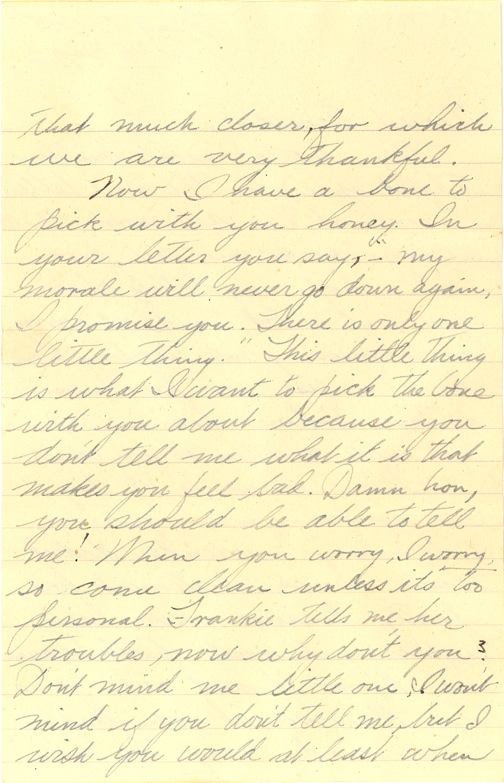 that much closer, for which
we are very thankful.
Now I have a bone to
pick with you honey. In
your letter you say, "– my
morale will never go down again,
I promise you. There is only one
little thing." This little thing
is what I want to pick the bone
with you about because you
don't tell me what it is that
makes you feel bad. Damn hon,
you should be able to tell
me! When you worry, I worry,
so come clean unless its too
personal. Frankie tells me her
troubles, now why don't you?
Don't mind me little one, I won't
mind if you don't tell me, but I
wish you would at least when